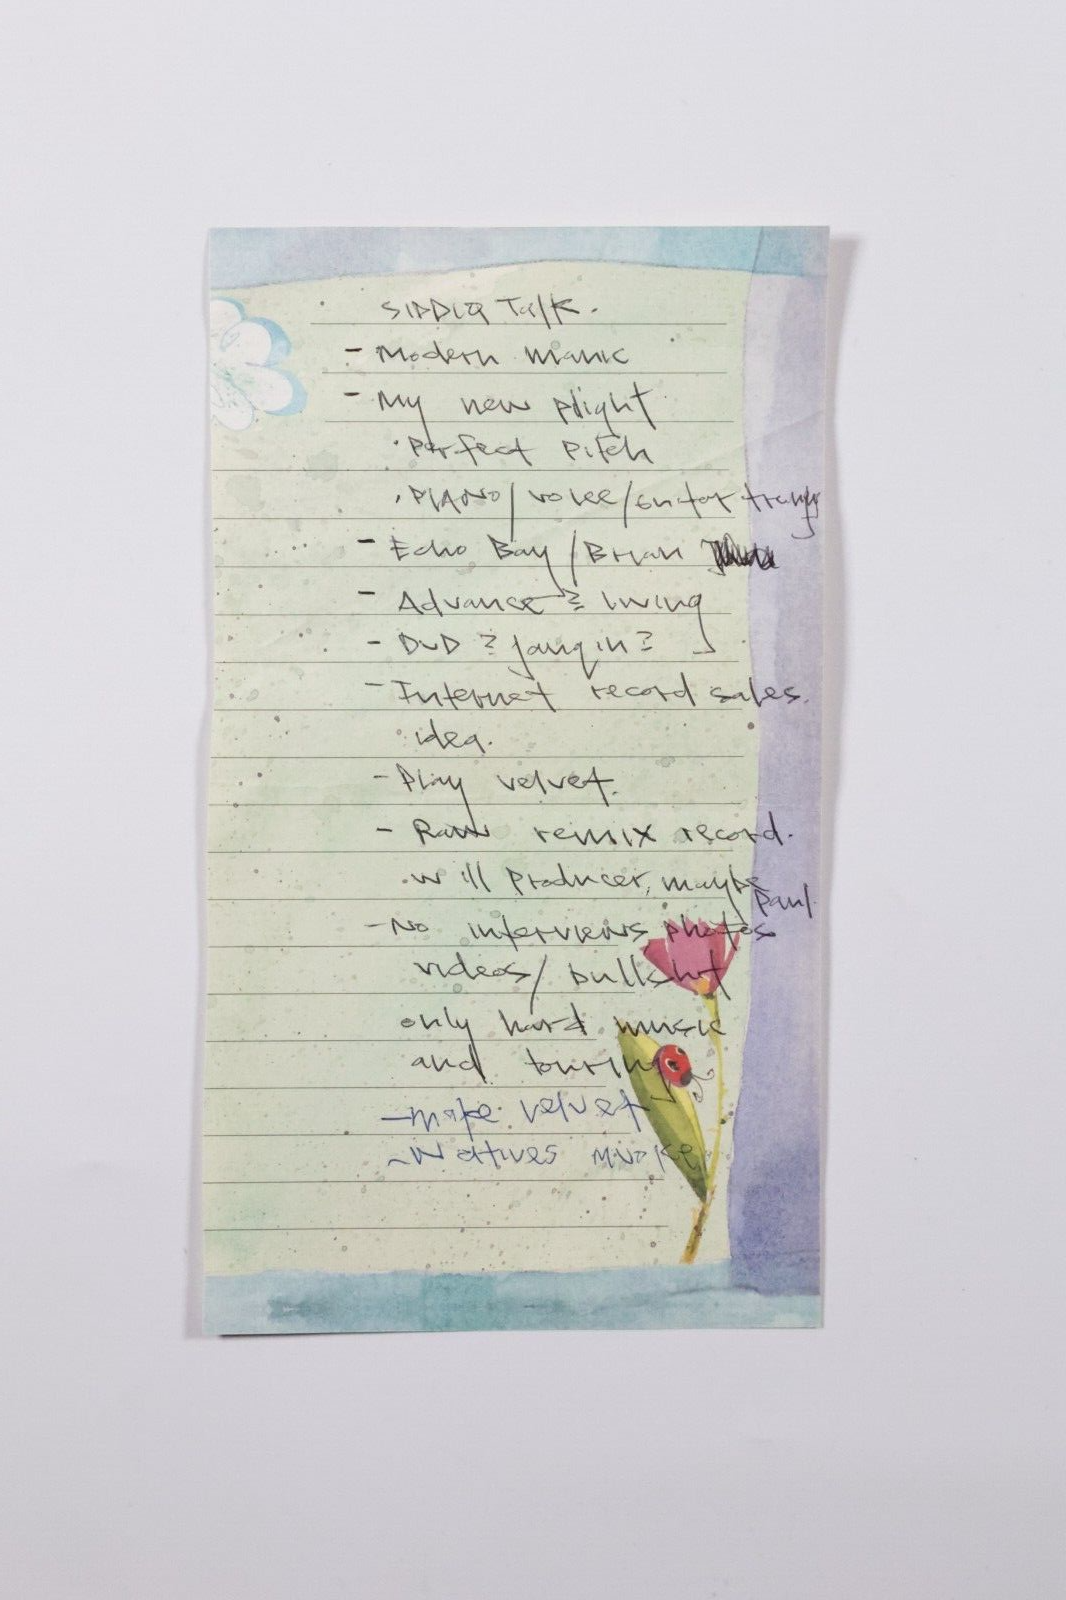 SIDDIQ Talk.
- Modern manic
- My new plight
· Perfect Pitch
· PIANO/voice/Guitar
- Echo Bay/Brian
- Advance & living
- DVD ?
- Internet record sales.
idea.
- Play velvet.
- Raw remix record.
· will producer, maybe
Paul.
- No interviews, photos
videos/bullshit
only hard music
and touring
- Make velvet
- Natives